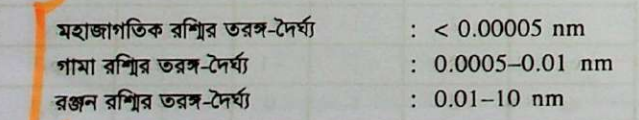 মহাজাগতিক রশ্মির তরঙ্গ-দৈর্ঘ্য : < 0.00005 nm
গামা রশ্মির তরঙ্গ-দৈর্ঘ্য : 0.0005–0.01 nm
রঞ্জন রশ্মির তরঙ্গ-দৈর্ঘ্য : 0.01–10 nm